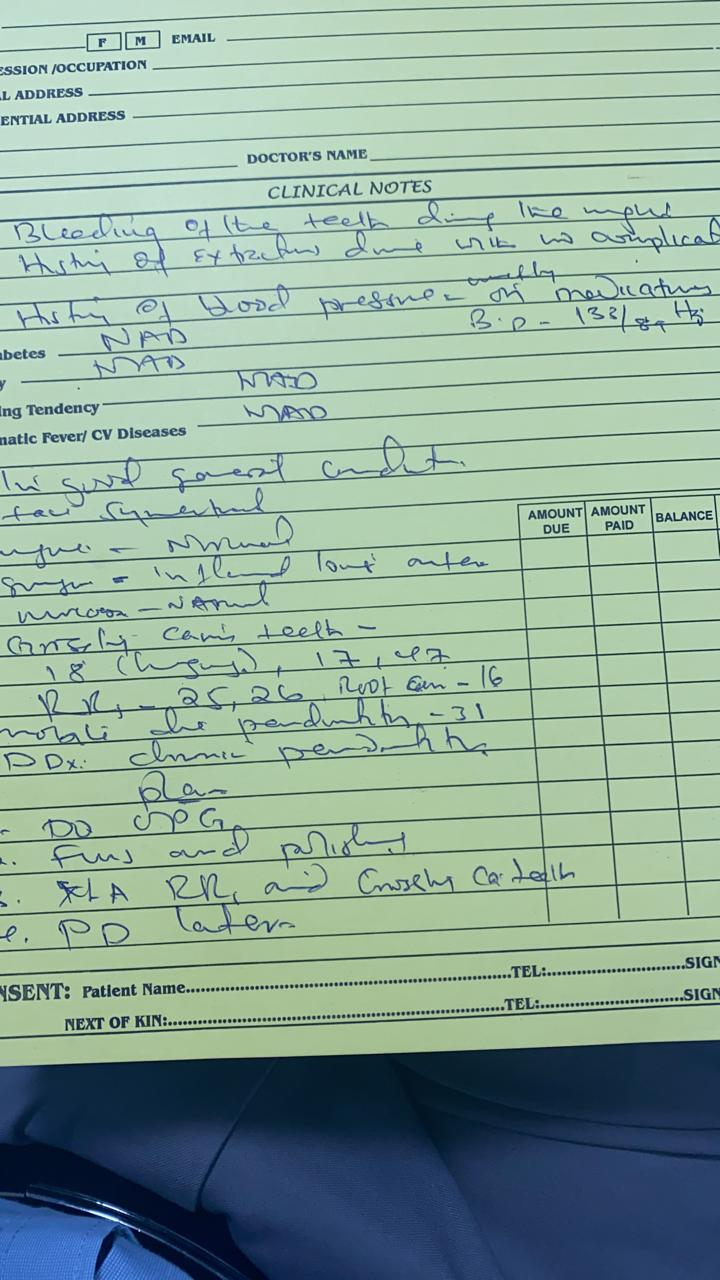 F M EMAIL
ESSION /OCCUPATION
L ADDRESS
ENTIAL ADDRESS
DOCTOR'S NAME
CLINICAL NOTES
Bleeding of the teeth during the night
History of extractions done with no complicat
History of blood pressure - on medications
B.P - 132/89 Hg
abetes NAD
y NAD
ing Tendency NAD
matic Fever/ CV Diseases NAD
In good general condit.
face symmetrical
- Normal
AMOUNT DUE AMOUNT PAID BALANCE
= inflamed
mucosa - Normal
Grossly caries teeth -
18 , 17, 47
RRs - 25, 26, Root - 16
mobile due periodontitis - 31
DDx: chronic periodontitis
plan
- DO OPG
. FMS and polishing
3. XLA RRs and Grossly Ca. teeth
e. PD later
NSENT: Patient Name TEL: SIGN
NEXT OF KIN: TEL: SIGN